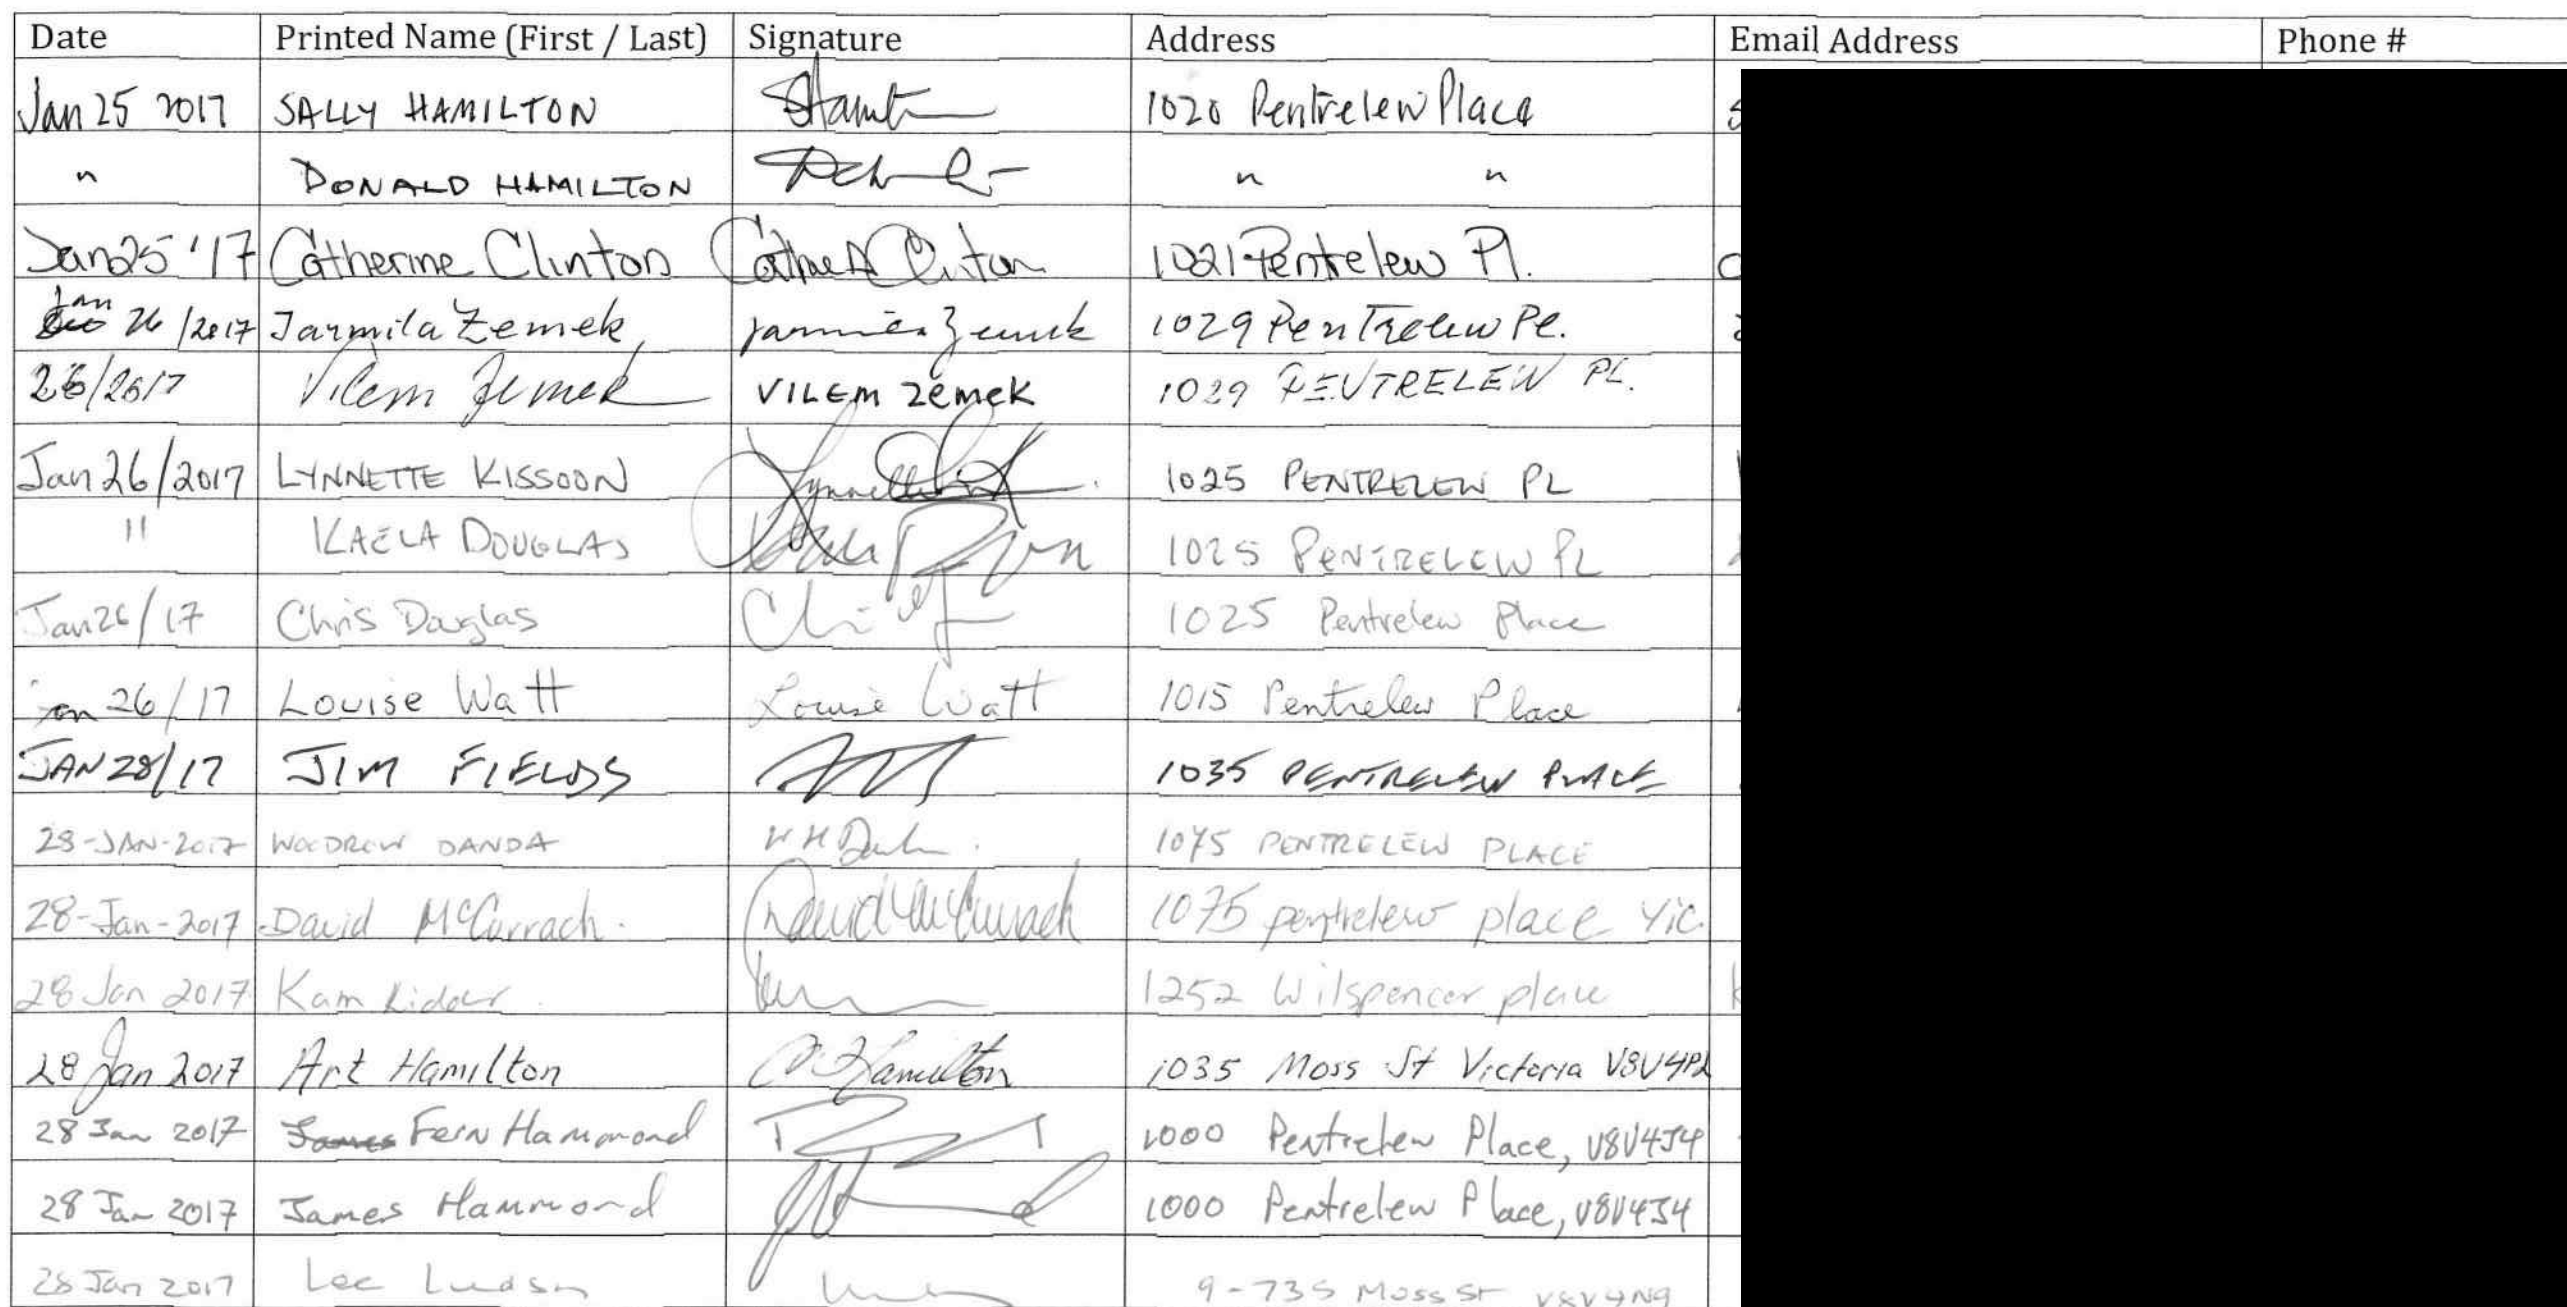 Date Printed Name (First / Last) Signature Address Email Address Phone #
Jan 25 2017 SALLY HAMILTON SHamilt 1020 Pentrelew Place
" DONALD HAMILTON " "
Jan 25 '17 Catherine Clinton Clinton 1021 Pentrelew Pl.
Jan 26/2017 Jarmila Zemek Jarmila Zemek 1029 Pentrelew Pl.
26/2017 Vilem Zemek VILEM ZEMEK 1029 PENTRELEW PL.
Jan 26/2017 LYNNETTE KISSOON Lynnette 1025 PENTRELEW PL
11 KAELA DOUGLAS 1025 PENTRELEW PL
Jan 26/17 Chris Douglas 1025 Pentrelew Place
26/17 Louise Watt Louise Watt 1015 Pentrelew Place
JAN 28/17 JIM FIELDS 1035 PENTRELEW PLACE
28-JAN-2017 WOODROW DANDA 1075 PENTRELEW PLACE
28-Jan-2017 David McCurrach. David McCurrach 1075 pentrelew place Vic.
28 Jan 2017 Kam 1252 Wilspencer place
28 Jan 2017 Art Hamilton Hamilton 1035 Moss St Victoria V8V4P2
28 Jan 2017 Fern Hammond 1000 Pentrelew Place, V8V4J4
28 Jan 2017 James Hammond 1000 Pentrelew Place, V8V4J4
28 Jan 2017 Lee 9-735 Moss St V8V4N9